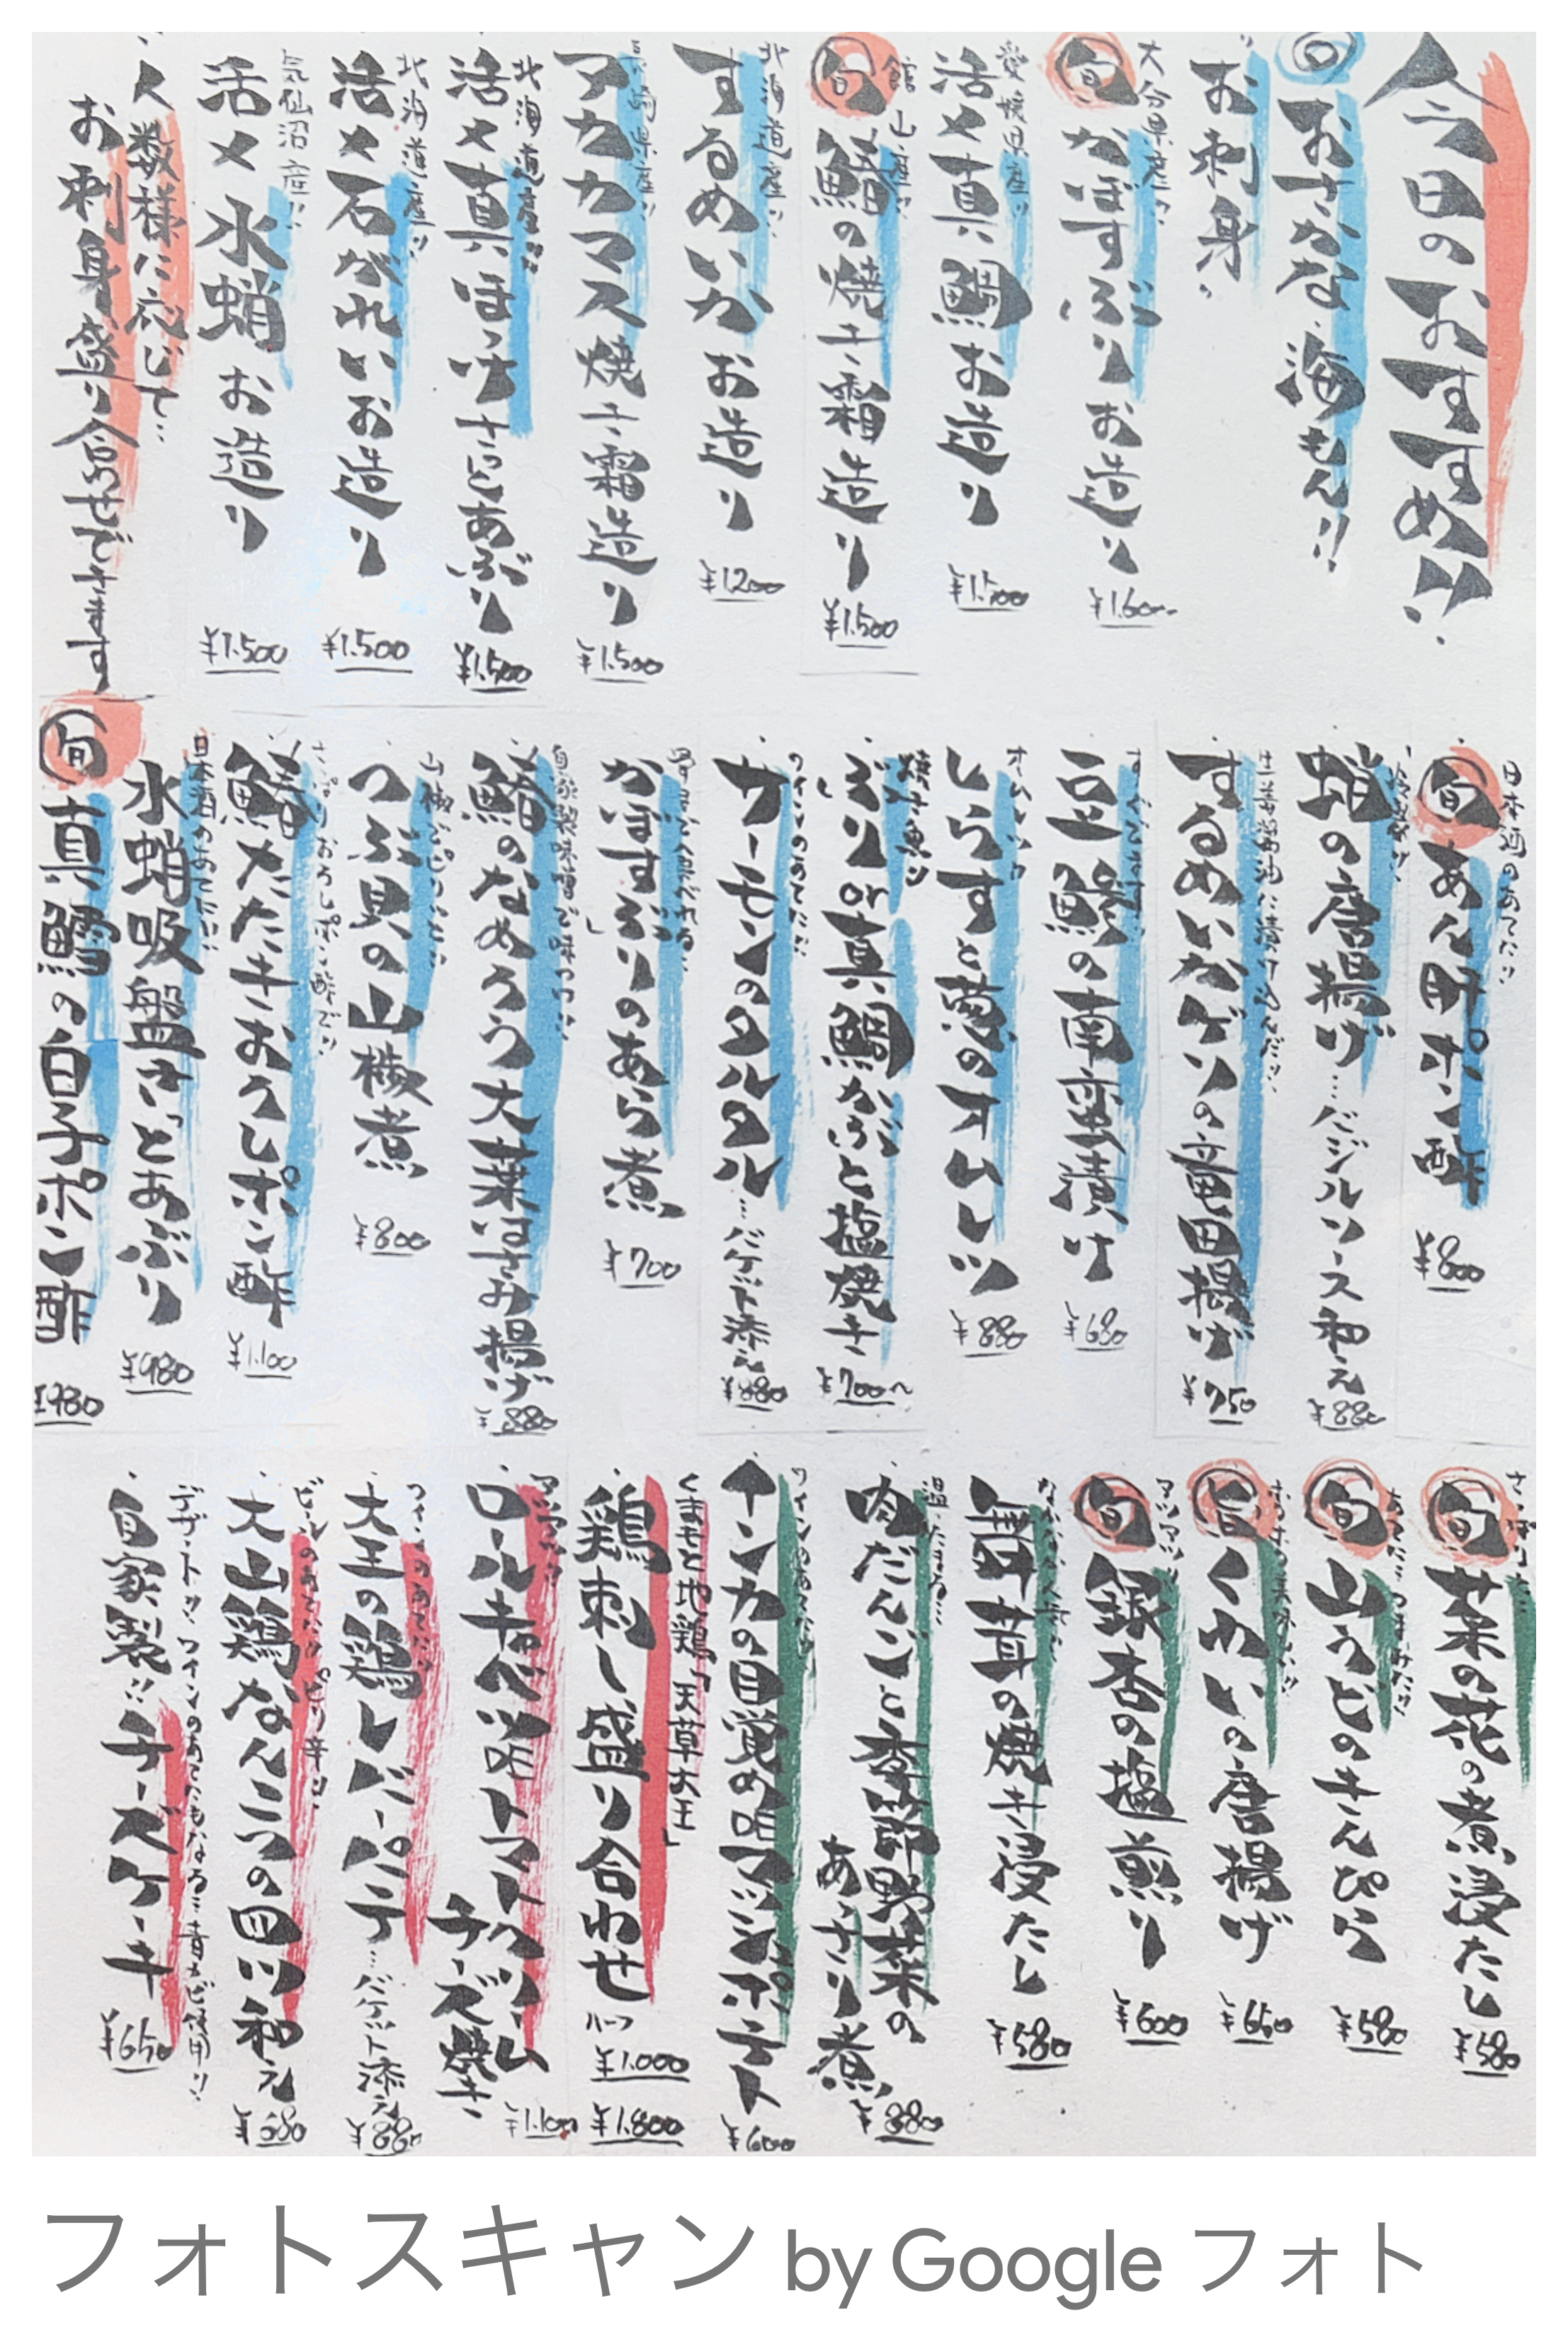 今日のおすすめ!!
旬 おさかな、海もん!!
お刺身
大分県産!!
旬 かぼすぶりお造り
¥1.600
愛媛県産!!
活〆真鯛お造り
¥1.500
館山産!!
旬 鰆の焼き霜造り
¥1.500
北海道産!!
するめいかお造り
¥1200
長崎県産!!
アカカマス焼き霜造り
¥1.500
北海道産!!
活〆真ほっけさっとあぶり
¥1.500
北海道産!!
活〆石がれいお造り
¥1.500
気仙沼産!!
活〆水蛸お造り
¥1.500
人数様に応じて…
お刺身盛り合わせできます
日本酒のあてに!!
旬 あん肝ポン酢
¥800
蛸の唐揚げ…バジルソース和え
¥880
生姜醤油に漬け込んだ!!
するめいかげその竜田揚げ
¥750
すぐでます!!
豆鯵の南蛮漬け
¥680
オムレツ
しらすと葱のオムレツ
¥880
焼き魚!!
ぶりor真鯛かぶと塩焼き
¥700〜
ワインのあてに!!
サーモンのタルタル…バゲット添え
¥880
かぼすぶりのあら煮
¥700
自家製味噌で味つけ!!
鰆のなめろう大葉はさみ揚げ
¥880
つぶ貝の山椒煮
¥800
さっぱりおろしポン酢で!!
鰆たたきおろしポン酢
¥1.100
日本酒のあてに!!
水蛸吸盤さっとあぶり
¥980
旬 真鱈の白子ポン酢
¥980
旬 菜の花の煮浸たし
¥580
旬 山うどのきんぴら
¥580
旬 くわいの唐揚げ
¥650
旬 銀杏の塩煎り
¥600
舞茸の焼き浸たし
¥580
温たまる!!
肉だんごと季節野菜の
あっさり煮
¥880
インカの目覚め明マッシュポテト
¥600
くまもと地鶏「天草大王」
鶏刺し盛り合わせ
ハーフ ¥1.000
¥1.800
ロールキャベツ
トマトクリーム
チーズ焼き
¥1.100
ワインのあてに!!
大王の鶏レバーパテ…バゲット添え
¥880
ビールのあてに!!ピリ辛!!
大山鶏なんこつの四川和え
¥680
デザート!! ワインのあてにもなる!! 青カビ使用!!
自家製!!チーズケーキ
¥650
フォトスキャン by Google フォト